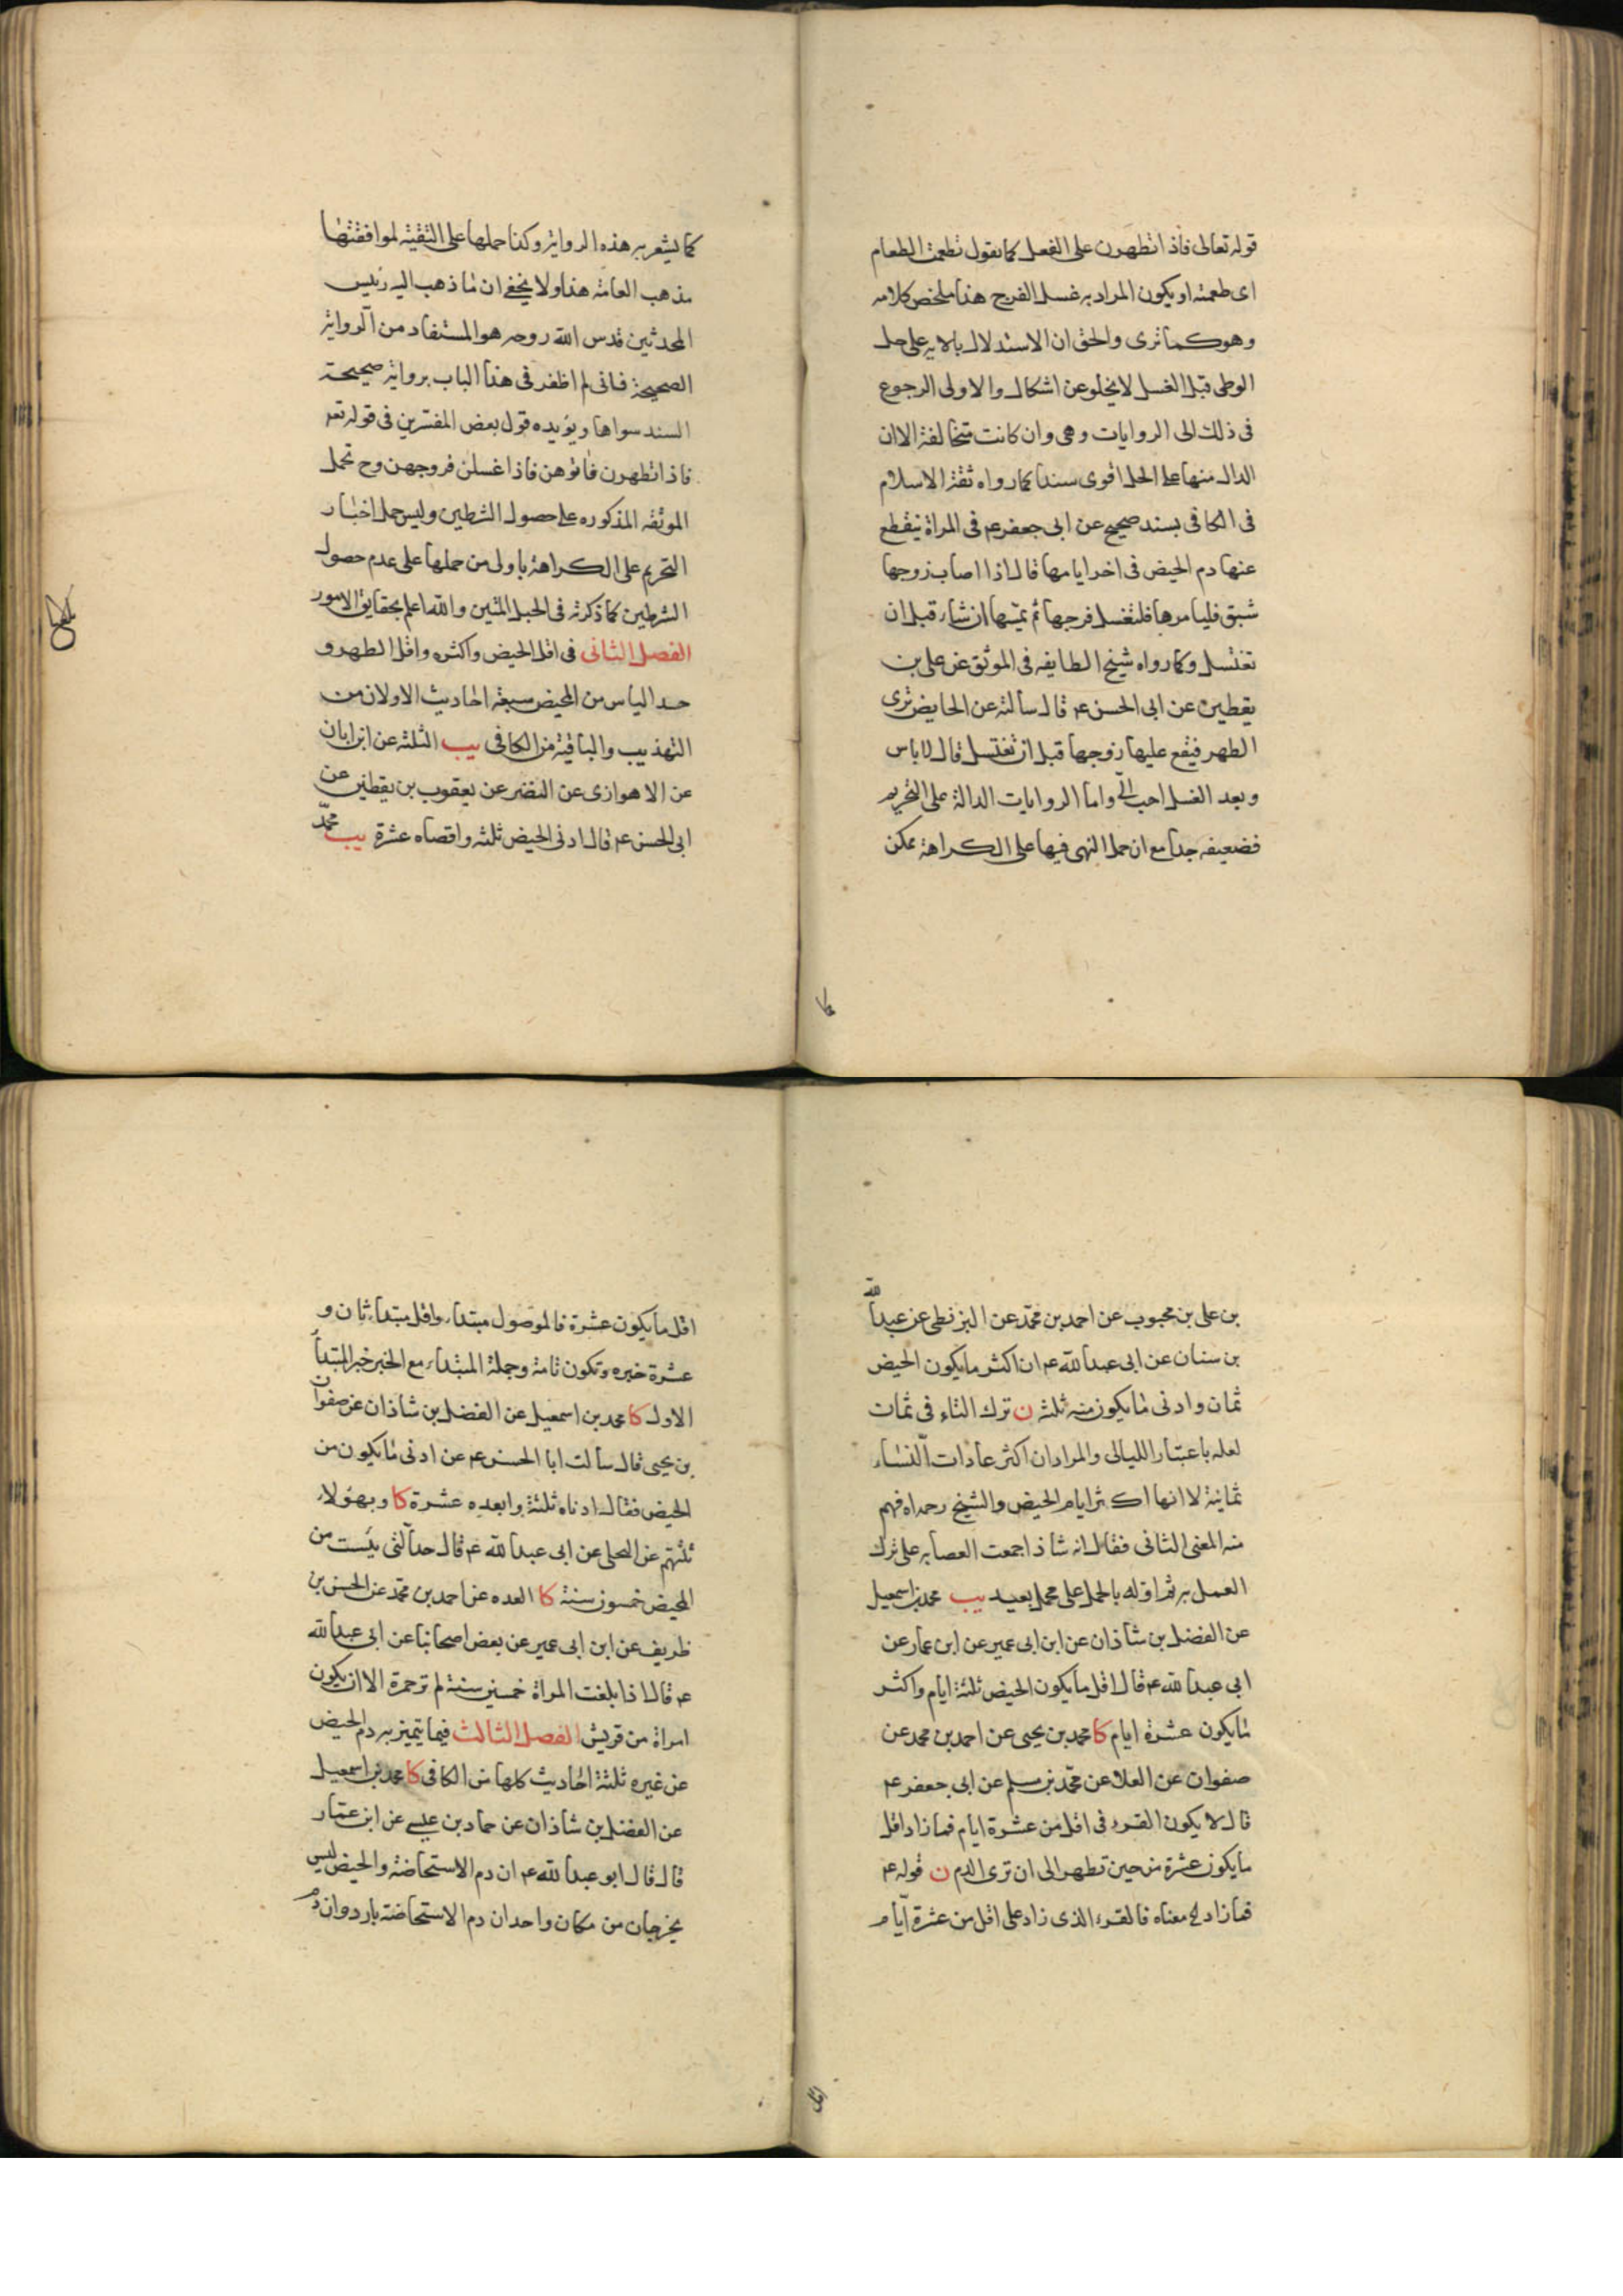 قوله تعالى فاذا تطهرن على الفعل كما يقول تطعمت الطعام
اى طعمته او يكون المراد به غسل الفرج هذا ملخص كلامه
وهو كما ترى والحق ان الاستدلال بالايه على حل
الوطى قبل الغسل لا يخلو عن اشكال والاولى الرجوع
فى ذلك الى الروايات وهى وان كانت متخالفة الا ان
الدال منها على الحل اقوى سندا كما رواه ثقة الاسلام
فى الكافى بسند صحيح عن ابى جعفر ع فى المراة ينقطع
عنها دم الحيض فى اخر ايامها قال اذا اصاب زوجها
شبق فليامرها فلتغسل فرجها ثم يمسها ان شاء قبل ان
تغتسل وكما رواه شيخ الطايفه فى الموثق عن على بن
يقطين عن ابى الحسن ع قال سالته عن الحايض ترى
الطهر فيقع عليها زوجها قبل ان تغتسل قال لا باس
وبعد الغسل احب الىّ واما الروايات الدالة على التحريم
فضعيفه جدا مع ان حمل النهى فيها على الكراهة ممكن
كما يشعر به هذه الرواية وكذا حملها على التقية لموافقتها
مذهب العامة هذا ولا يخفى ان ما ذهب اليه رئيس
المحدثين قدس الله روحه هو المستفاد من الرواية
الصحيحة فانى لم اظفر فى هذا الباب برواية صحيحة
السند سواها ويؤيده قول بعض المفسرين فى قوله تعه
فاذا تطهرن فاتوهن فاذا غسلن فروجهن وح تحمل
الموثقه المذكوره على حصول الشرطين وليس حمل اخبار
التحريم على الكراهة باولى من حملها على عدم حصول
الشرطين كما ذكرته فى الحبل المتين والله اعلم بحقايق الامور
الفصل الثانى فى اقل الحيض واكثره واقل الطهر و
حد الياس من المحيض سبعة احاديث الاولان من
التهذيب والباقية من الكافى يب الثلثة عن ابن ابان
عن الاهوازى عن النضر عن يعقوب بن يقطين عن
ابى الحسن ع قال ادنى الحيض ثلثه واقصاه عشرة يب محمّد
بن على بن محبوب عن احمد بن محمّد عن البزنطى عن عبدالله
بن سنان عن ابى عبدالله ع ان اكثر ما يكون الحيض
ثمان وادنى ما يكون منه ثلثه ن ترك التاء فى ثمان
لعله باعتبار الليالى والمراد ان اكثر عادات النساء
ثمانية لا انها اكثر ايام الحيض والشيخ رحمه الله فهم
منه المعنى الثانى فقال انه شاذ اجمعت العصابه على ترك
العمل به ثم اوله بالحمل على محمل بعيد يب محمد بن اسمعيل
عن الفضل بن شاذان عن ابن ابى عمير عن ابن عمار عن
ابى عبدالله ع قال اقل ما يكون الحيض ثلثة ايام واكثر
ما يكون عشرة ايام كا محمد بن يحيى عن احمد بن محمد عن
صفوان عن العلا عن محمّد بن مسلم عن ابى جعفر ع
قال لا يكون القرء فى اقل من عشرة ايام فما زاد اقل
ما يكون عشرة من حين تطهر الى ان ترى الدم ن قوله ع
فما زاد لخ معناه فالقرء الذى زاد على اقل من عشرة ايّام
اقل
اقل ما يكون عشرة فالموصول مبتداء واقل مبتداء ثان و
عشرة خبره وتكون تامة وجملة المبتداء مع الخبر خبر المبتدأ
الاول كا محمد بن اسمعيل عن الفضل بن شاذان عن صفوان
بن يحيى قال سالت ابا الحسن ع عن ادنى ما يكون من
الحيض فقال ادناه ثلثة وابعده عشرة كا وبهؤلاء
ثلثتهم عن البجلى عن ابى عبدالله ع قال حد التى يئست من
المحيض خمسون سنة كا العده عن احمد بن محمّد عن الحسن بن
ظريف عن ابن ابى عمير عن بعض اصحابنا عن ابى عبدالله
ع قال اذا بلغت المراة خمسين سنة لم تر حمرة الا ان يكون
امراة من قريش الفصل الثالث فيما يتميز به دم الحيض
عن غيره ثلثة احاديث كلها من الكافى كا محمد بن اسمعيل
عن الفضل بن شاذان عن حماد بن عيسى عن ابن عمار
قال قال ابو عبدالله ع ان دم الاستحاضة والحيض ليس
يخرجان من مكان واحد ان دم الاستحاضة بارد وان دم